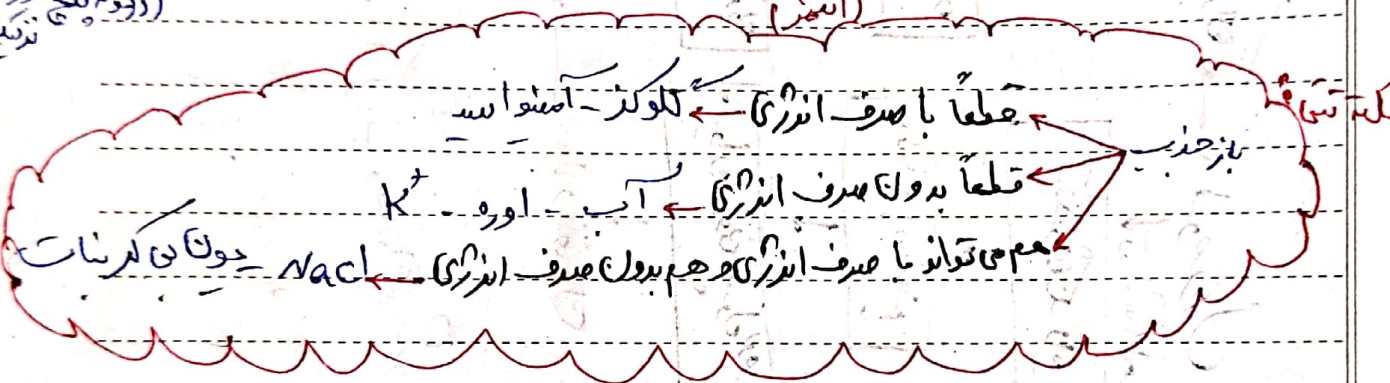 (اسمز)
نکته تستی:
بازجذب
قطعاً با صرف انرژی ← گلوکز - آمینواسید
قطعاً بدون صرف انرژی ← آب - اوره - K⁺
هم می تواند با صرف انرژی و هم بدون صرف انرژی ← NaCl - یون بی کربنات